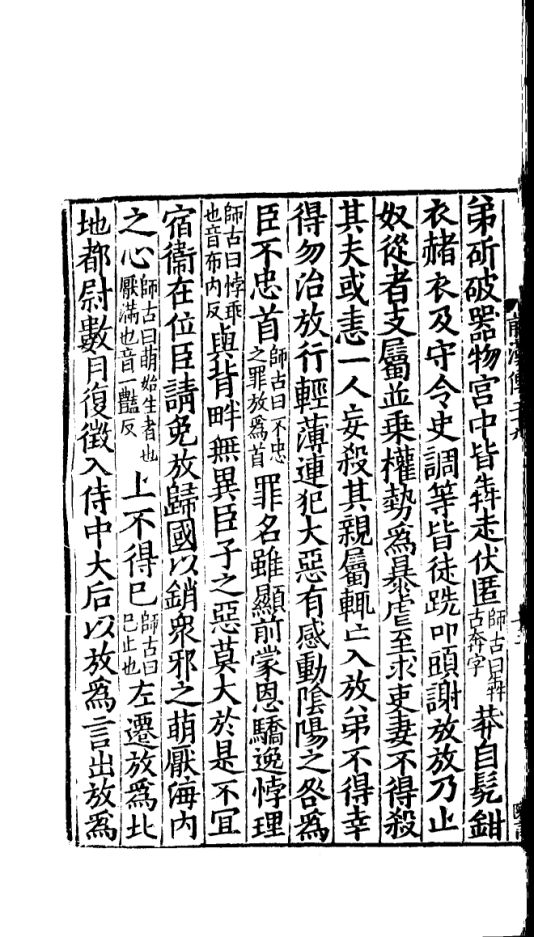 弟斫破器物宮中皆犇走伏匿師古曰犇古奔字莽自髡鉗
衣赭衣及守令史調等皆徒跣叩頭謝放放乃止
奴從者支屬並乗權勢爲暴虐至求吏妻不得殺
其夫或恚一人妄殺其親屬輒亡入放弟不得幸
得勿治放行輕薄連犯大惡有感動隂陽之咎爲
臣不忠首師古曰不忠之罪放爲首罪名雖顯前蒙恩驕逸悖理
師古曰悖乖也音布内反與背畔無異臣子之惡莫大於是不宜
宿衞在位臣請免放歸國以銷衆邪之萌厭海内
之心師古曰萌始生者也厭滿也音一豔反上不得已師古曰已止也左遷放爲北
地都尉數月復徵入侍中大后以放爲言出放爲